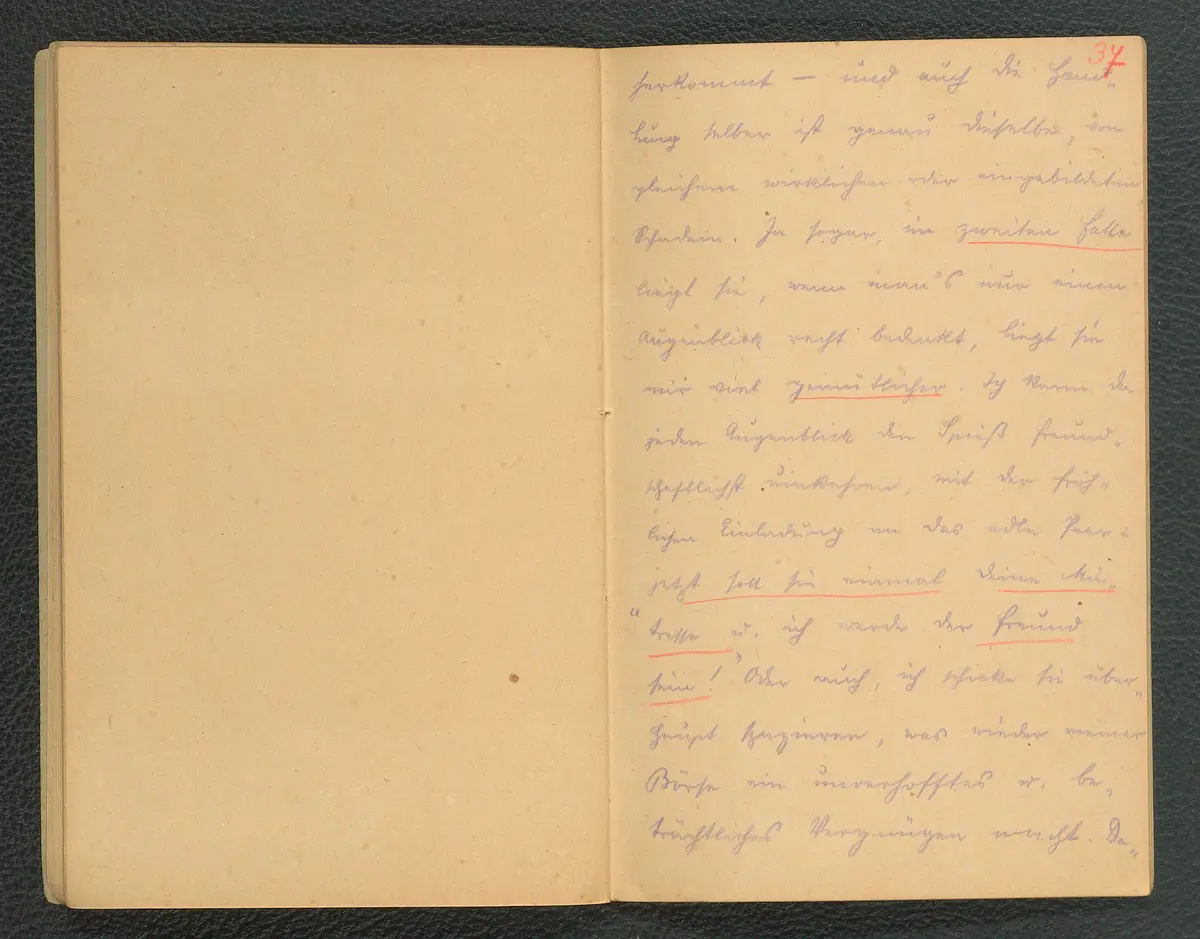 37
herkommt — und auch die Hand-
lung selber ist genau dieselbe, von
gleichem wirklichen oder eingebildeten
Schaden. Ja sogar, im zweiten Falle
liegt sie, wenn man's nur einen
Augenblick recht bedenkt, liegt sie
mir viel gemütlicher. Ich kann da
jeden Augenblick den Spieß freund-
schaftlichst umkehren, mit der fröh-
lichen Einladung an das edle Paar:
jetzt soll sie einmal deine Mä-
"tresse u. ich werde der Freund
sein!" Oder auch, ich schicke sie über-
haupt spazieren, was wieder meiner
Börse ein unverhofftes u. be-
trächtliches Vergnügen macht. Da-